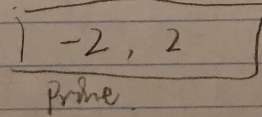 -2, 2
Prime